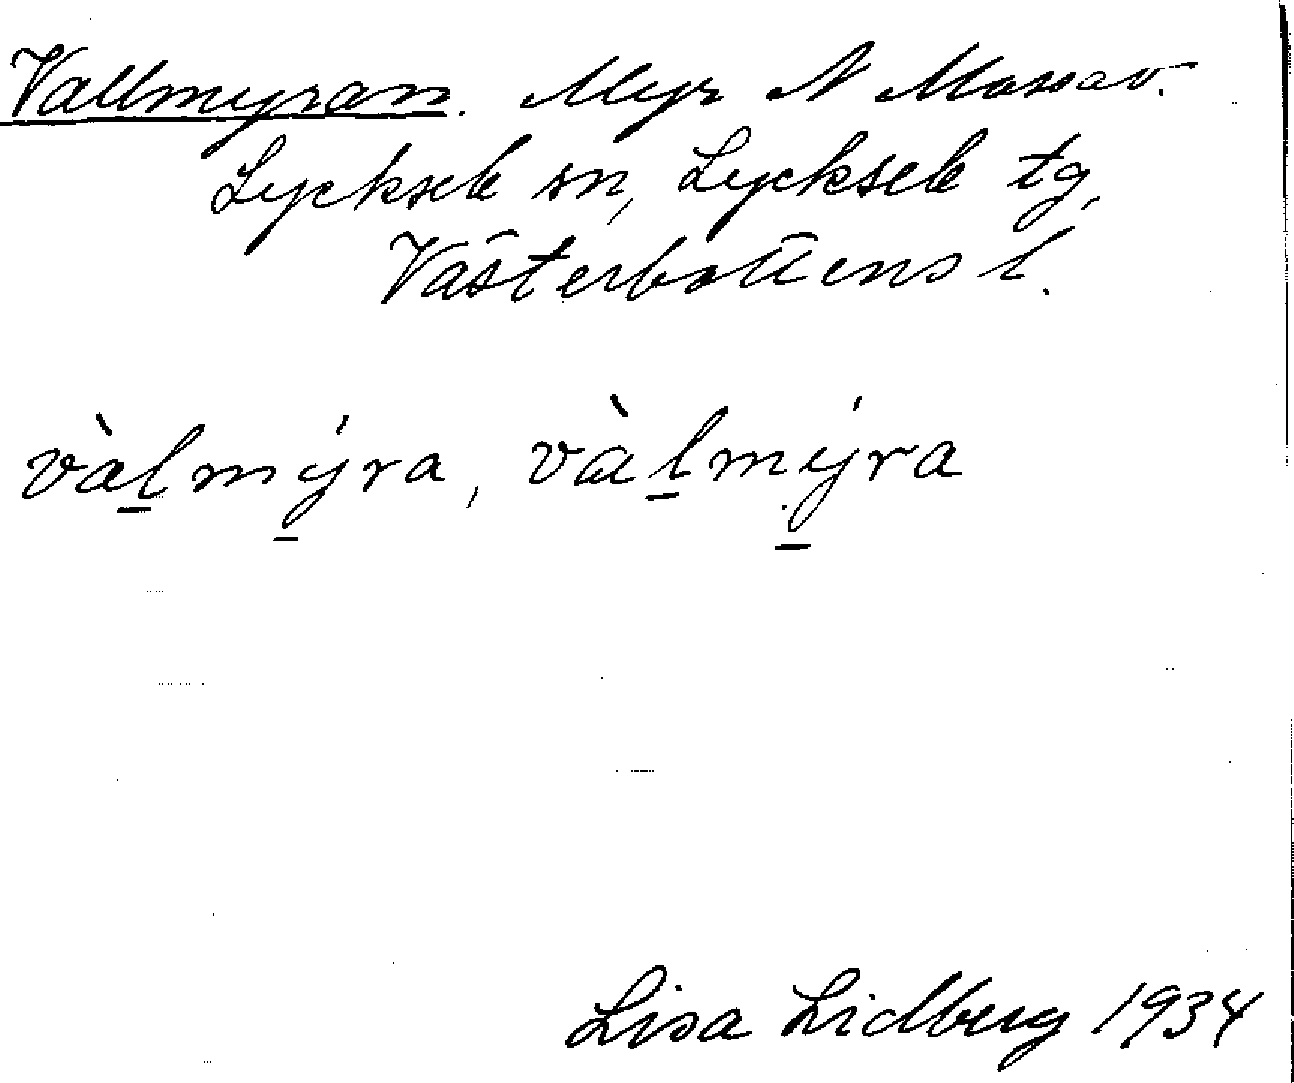 Vallmyran. Myr N Massav.
Lycksele sn, Lycksele tg,
Västerbottens l.
vàl̲mý̲ra, vàl̲mý̲ra
Lisa Lidberg 1934